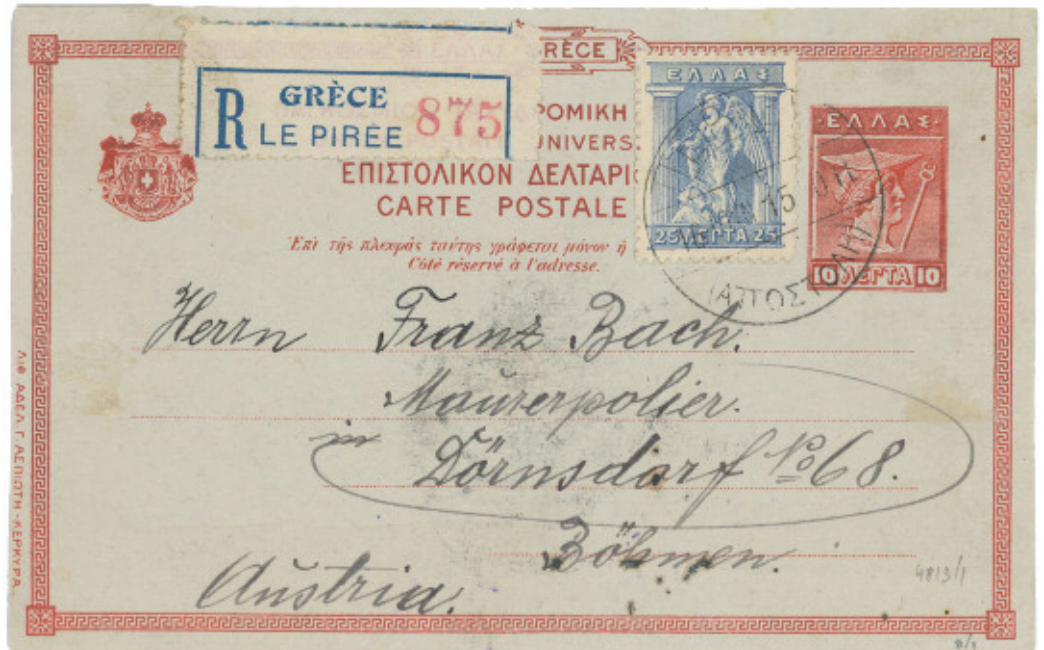 ΡÈCE
GRÈCE
R LE PIRÉE 875
ΡΟΜΙΚΗ
UNIVERS
ΕΠΙΣΤΟΛΙΚΟΝ ΔΕΛΤΑΡΙ
CARTE POSTALE
Ἐπὶ τῆς πλευρᾶς ταύτης γράφεται μόνον ἡ
Côté réservé à l'adresse.
ΕΛΛΑΣ
25 ΛΕΠΤΑ 25
ΕΛΛΑΣ
10 ΛΕΠΤΑ 10
15
(ΑΠΟΣΤΟΛΗ)
Herrn Franz Bach.
Maurerpolier.
in Dörnsdorf No 68.
Böhmen.
Austria.
4813/1
ΛΙΘ. ΑΔΕΛ. Γ. ΑΣΠΙΩΤΗ - ΚΕΡΚΥΡΑ